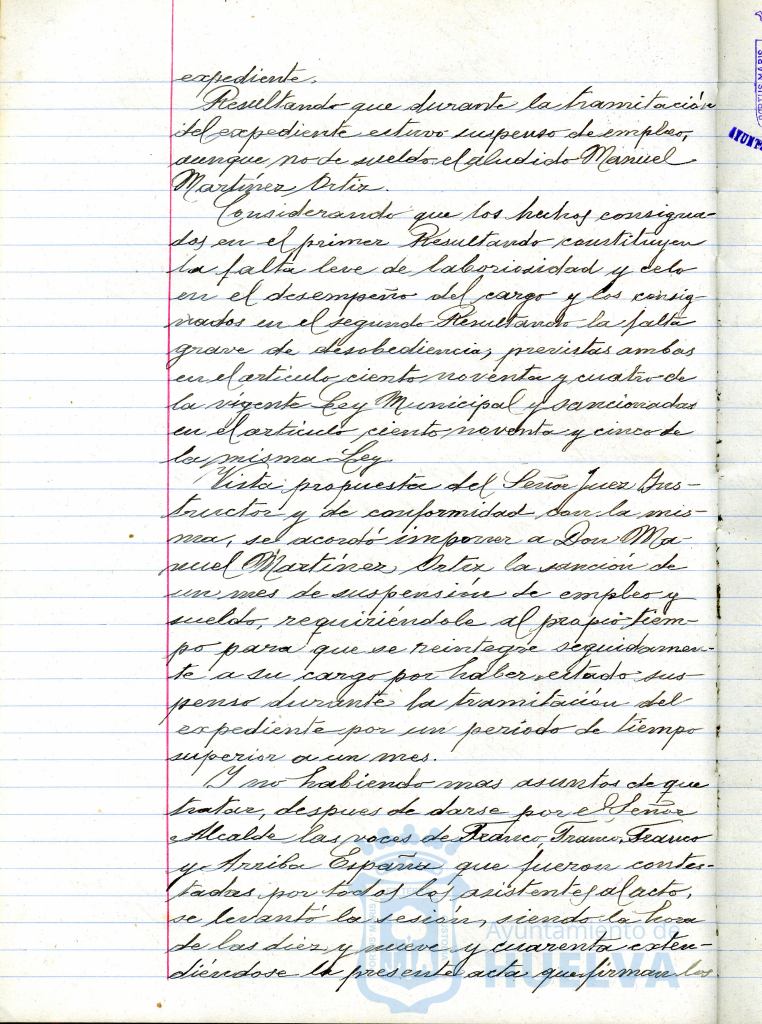 expediente.
Resultando que durante la tramitación
del expediente estuvo suspenso de empleo,
aunque no de sueldo el aludido Manuel
Martínez Ortiz.
Considerando que los hechos consigna-
dos en el primer Resultando constituyen
la falta leve de laboriosidad y celo
en el desempeño del cargo y los consig-
nados en el segundo Resultando la falta
grave de desobediencia, previstas ambas
en el artículo ciento noventa y cuatro de
la vigente Ley Municipal y sancionadas
en el artículo ciento noventa y cinco de
la misma Ley.
Vista propuesta del Señor Juez Ins-
tructor y de conformidad con la mis-
ma, se acordó imponer a Don Ma-
nuel Martínez Ortiz la sanción de
un mes de suspensión de empleo y
sueldo, requiriéndole al propio tiem-
po para que se reintegre seguidamen-
te a su cargo por haber estado sus-
penso durante la tramitación del
expediente por un período de tiempo
superior a un mes.
Y no habiendo mas asuntos de que
tratar, despues de darse por el Señor
Alcalde las voces de Franco, Franco, Franco
y Arriba España que fueron contes-
tadas por todos los asistentes al acto,
se levantó la sesión, siendo la hora
de las diez y nueve y cuarenta exten-
diéndose la presente acta que firman los
Ayuntamiento de
HUELVA